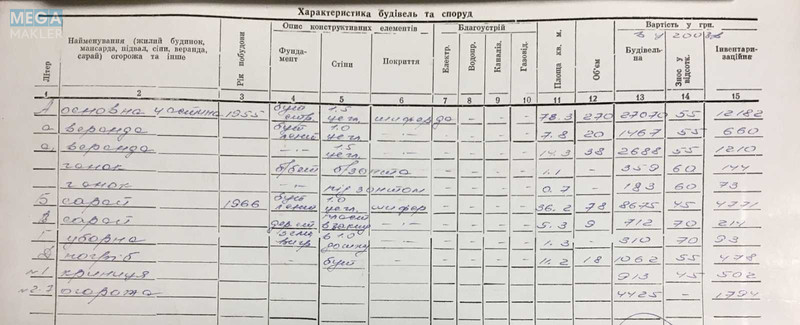 MEGA
MAKLER
Характеристика будівель та споруд
Літер
Найменування (жилий будинок, мансарда, підвал, сіни, веранда, сарай) огорожа та інше
Рік побудови
Опис конструктивних елементів
Фундамент
Стіни
Покриття
Благоустрій
Електр.
Водопр.
Каналіз.
Газовід.
Площа кв. м.
Об'єм
Вартість у грн.
Будівельна
Знос у відсотк.
Інвентаризаційне
1 2 3 4 5 6 7 8 9 10 11 12 13 14 15
А основна частина 1955 1.5 цегл. шифер да - - - 78.3 270 27070 55 12182
а веранда 1.0 цегл. - - - - 7.8 20 1467 55 660
а, веранда 1.5 цегл. - - - - 14.3 38 2688 55 1210
ганок б/бет - - - - 1.1 - 359 60 144
ганок - - - - 0.7 - 183 60 73
Б сарай 1966 1.0 цегл. шифер - - - - 36.2 78 8675 45 4771
В сарай - - - - 5.3 9 712 70 214
Г уборна - - - - 1.3 - 310 70 93
Д погріб бут - - - - - 11.2 18 1062 55 478
№1 криниця 913 45 502
№2-3 огорожа 4425 - 1794